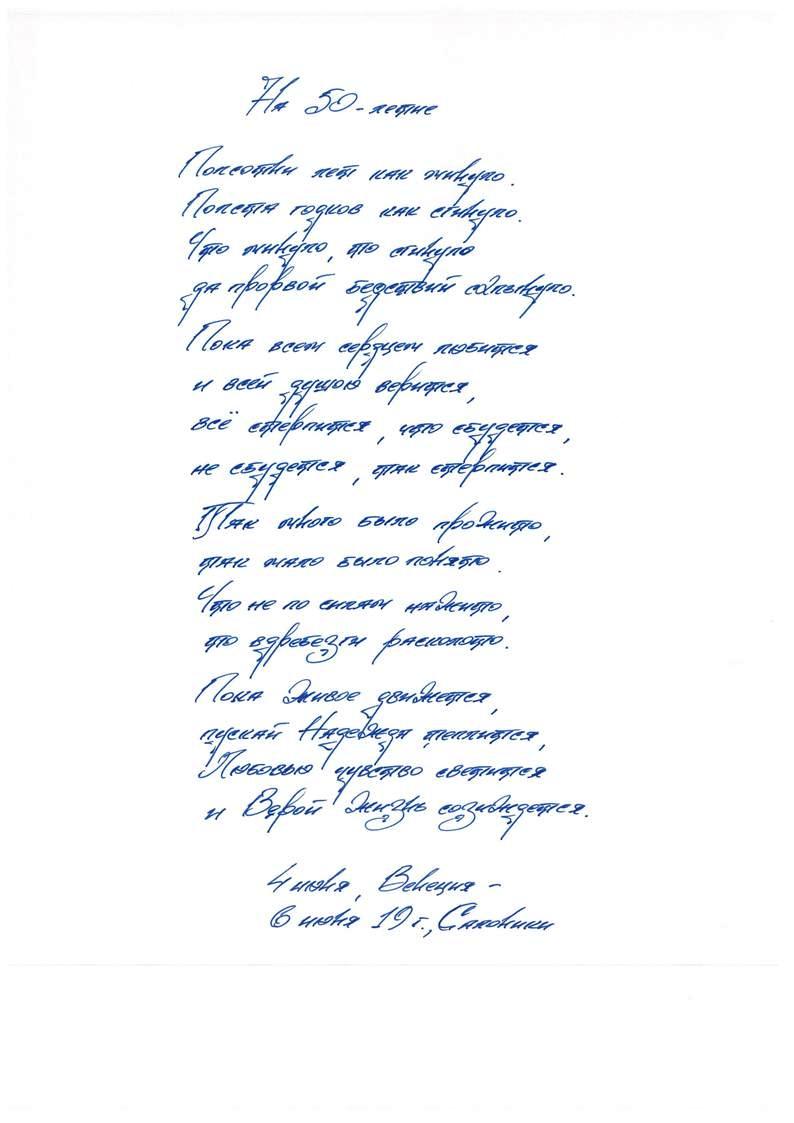 На 50-летие
Полсотни лет как минуло.
Полста годков как сгинуло.
Что минуло, то сгинуло
да прорвой бедствий схлынуло.
Пока всем сердцем любится
и всей душою верится,
всё стерпится, что сбудется,
не сбудется, так стерпится.
Так много было прожито,
так мало было понято.
Что не по силам нажито,
то вдребезги расколото.
Пока живое движется,
пускай Надежда теплится,
Любовью чувство светится
и Верой жизнь созиждется.
4 июня, Венеция –
6 июня 19 г., Салоники